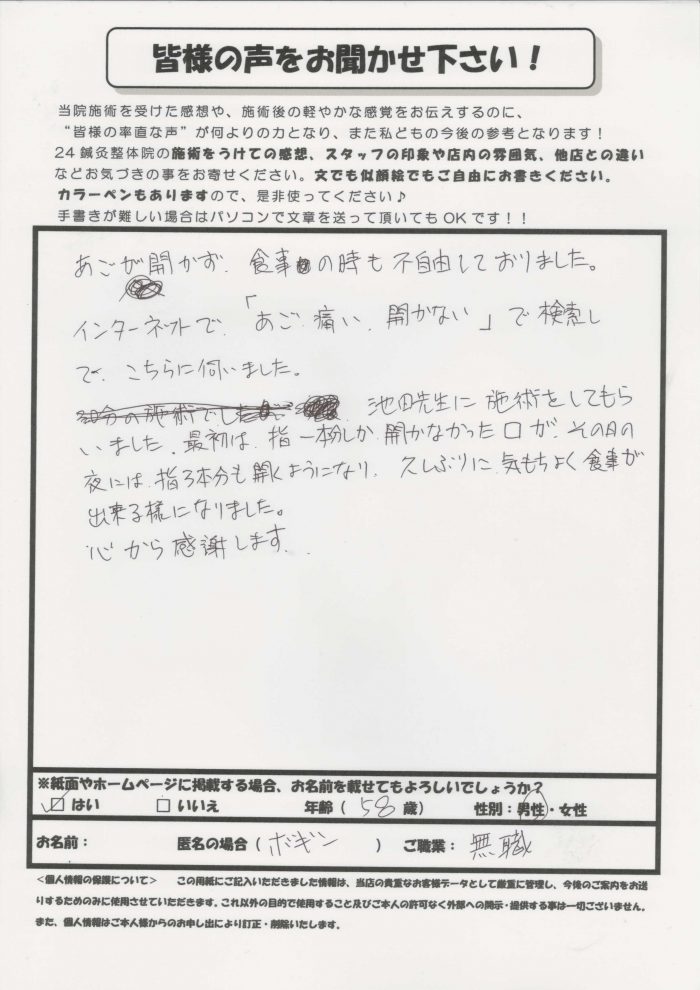 皆様の声をお聞かせ下さい！
当院施術を受けた感想や、施術後の軽やかな感覚をお伝えするのに、
“皆様の率直な声”が何よりの力となり、また私どもの今後の参考となります！
24鍼灸整体院の施術をうけての感想、スタッフの印象や店内の雰囲気、他店との違い
などお気づきの事をお寄せください。文でも似顔絵でもご自由にお書きください。
カラーペンもありますので、是非使ってください♪
手書きが難しい場合はパソコンで文章を送って頂いてもOKです！！
あごが開かず、食事の時も不自由しておりました。
インターネットで、「あご 痛い、開かない」で検索し
て、こちらに伺いました。
池田先生に施術をしてもら
いました。最初は、指一本しか開かなかった口が、その日の
夜には、指3本分も開くようになり、久しぶりに気もちよく食事が
出来る様になりました。
心から感謝します。
※紙面やホームページに掲載する場合、お名前を載せてもよろしいでしょうか？
☑はい □いいえ 年齢（58歳） 性別：男性・女性
お名前： 匿名の場合（ボギン） ご職業：無職
＜個人情報の保護について＞ この用紙にご記入いただきました情報は、当店の貴重なお客様データとして厳重に管理し、今後のご案内をお送
りするためのみに使用させていただきます。これ以外の目的で使用すること及びご本人の許可なく外部への開示・提供する事は一切ございません。
また、個人情報はご本人様からのお申し出により訂正・削除いたします。